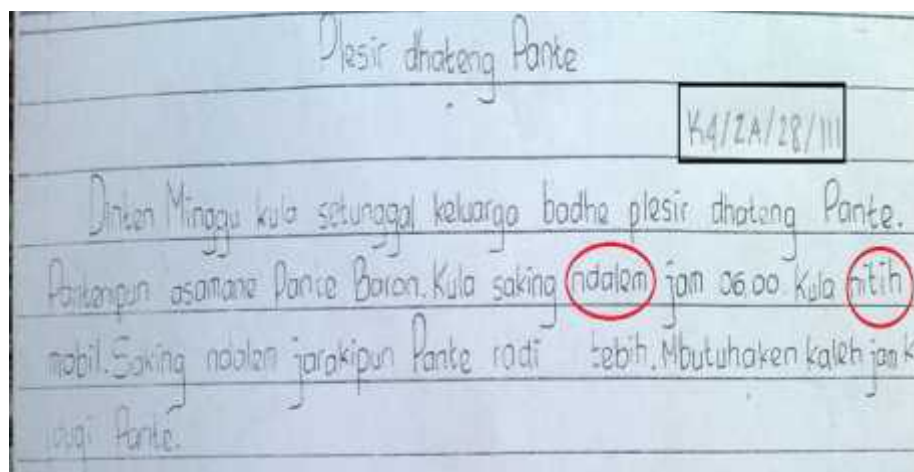 Plesir dhateng Pante
K4/ZA/28/III
Dinten Minggu kula setunggal keluargo badhe plesir dhateng Pante.
Pantenipun asamane Pante Baron. Kula saking ndalem jam 06.00 Kula nitih
mobil. Saking ndalem jarakipun Pante radi tebih. Mbutuhaken kaleh jam
Pante.